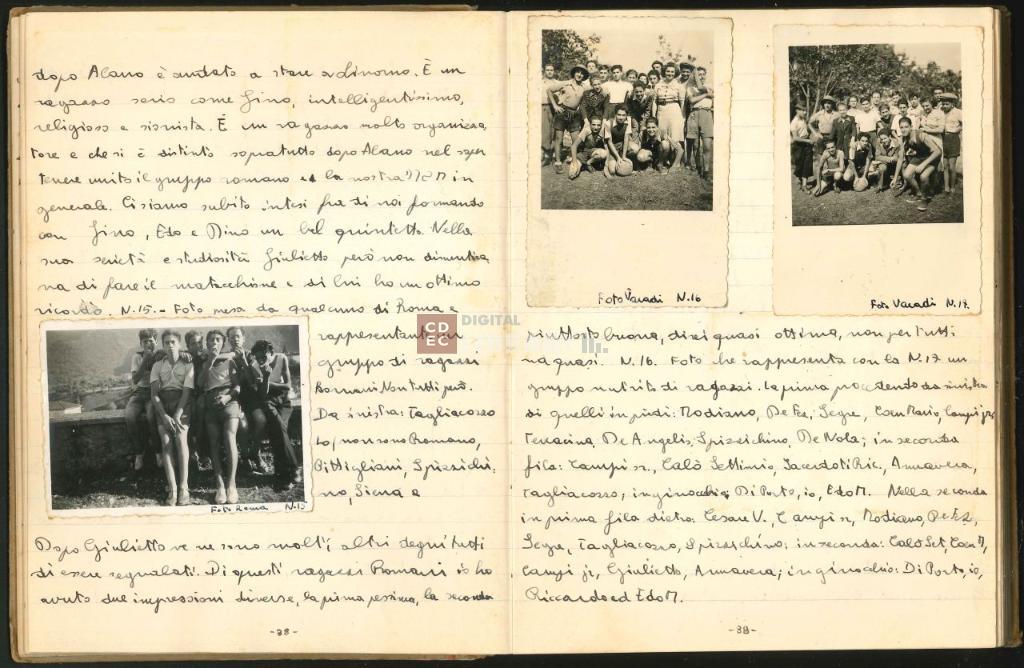 dopo Alano è andato a stare a Livorno. È un
ragazzo serio come Gino, intelligentissimo,
religioso e sionista. È un ragazzo molto organizza
tore e che si è distinto sopratutto dopo Alano nel saper
tenere unito il gruppo romano e la nostra in
generale. Ci siamo subito intesi fra di noi formando
con Gino, Edo e Dino un bel quintetto. Nella
sua serietà e studiosità Giulietto però non dimentica
va di fare il mattacchione e di lui ho un ottimo
ricordo. N.15.- Foto presa da qualcuno di Roma e
rappresentante un
gruppo di ragazzi
Romani. Non tutti però.
Da sinistra: Tagliacozzo
Io, (non sono Romano),
Pittigliani, Spizzichi-
no, Siena e
Foto Roma N.15
Dopo Giulietto ve ne sono molti altri degni tutti
di essere segnalati. Di questi ragazzi Romani io ho
avuto due impressioni diverse, la prima pessima, la seconda
-38-
Foto Varadi N.16
Foto Varadi N.17.
CDEC
DIGITAL
piuttosto buona, direi quasi ottima, non per tutti
ma quasi. N.16. Foto che rappresenta con la N.17 un
gruppo nutrito di ragazzi. La prima procedendo da sinistra
di quelli in piedi: Modiano, De Fez, Segre, Coen Mario, Campi jr,
Terracina, De Angelis, Spizzichino, De Nola; in seconda
fila: Campi sr., Calò Settimio, Sacerdoti Ric., Annavera,
Tagliacozzo; inginocchio: Di Porto, io, Edo M. Nella seconda
in prima fila dietro: Cesare V., Campi sr, Modiano, De Fez,
Segre, Tagliacozzo, Spizzichino; in seconda: Calò Set, Coen M,
Campi jr, Giulietto, Annavera; in ginocchio: Di Porto, io,
Riccardo ed Edo M.
-39-